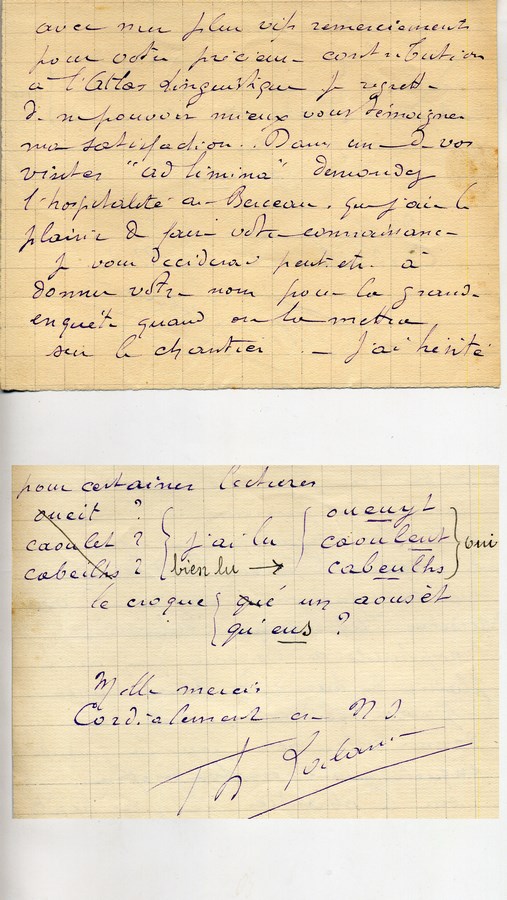 avec mes plus vifs remerciements
pour votre précieuse contribution
à l'Atlas linguistique je regrette
de ne pouvoir mieux vous témoigner
ma satisfaction. Dans une de vos
visites "ad limina" demandez
l'hospitalité au Berceau, que j'aie le
plaisir de faire votre connaissance
Je vous déciderai peut-être à
donner votre nom pour la grande
enquête quand on la mettra
sur le chantier. — J'ai hésité
pour certaines lectures
oueit ?
caoulet ? j'ai lu
cabeilhs ? bien lu →
oueuyt
caoulent
cabeulhs
oui
le croque qué un aousèt
qu'eus ?
Mille mercis
Cordialement en N. S.
Th